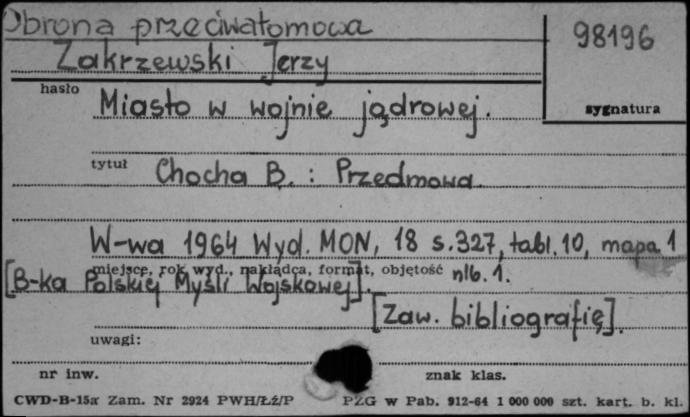 Obrona przeciwatomowa
98196
Zakrzewski Jerzy
hasło
Miasto w wojnie jądrowej.
sygnatura
tytuł Chocha B. : Przedmowa.
W-wa 1964 Wyd. MON, 18 s.327, tabl.10, mapa 1
miejsce, rok wyd., nakładca, format, objętość nlb. 1.
[B-ka Polskiej Myśli Wojskowej].
[Zaw. bibliografię].
uwagi:
nr inw.
znak klas.
CWD-B-15a Zam. Nr 2924 PWH/Łź/P PZG w Pab. 912-64 1 000 000 szt. kart. b. kl.